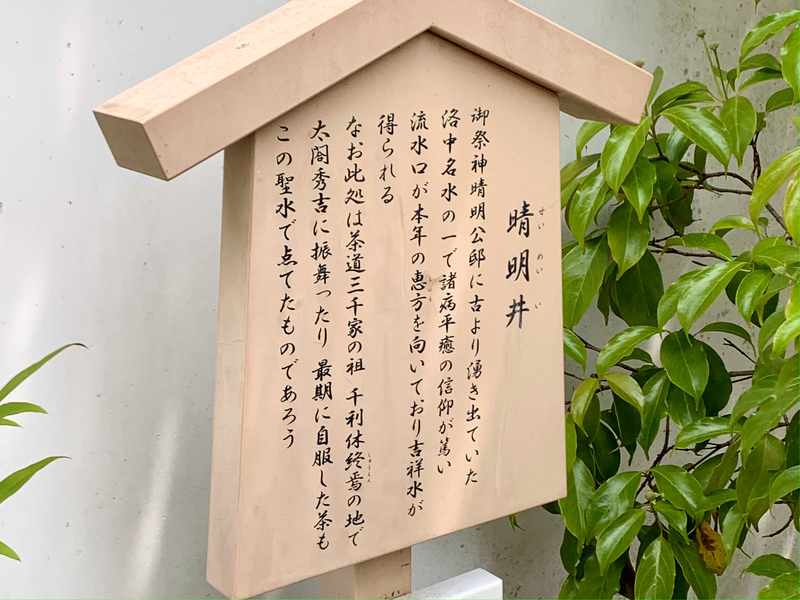 晴明井
せいめいい
御祭神晴明公邸に古より湧き出ていた
洛中名水の一で諸病平癒の信仰が篤い
流水口が本年の恵方を向いており吉祥水が
えほう
得られる
なお此処は茶道三千家の祖 千利休終焉の地で
しゅうえん
太閤秀吉に振舞ったり 最期に自服した茶も
この聖水で点てたものであろう